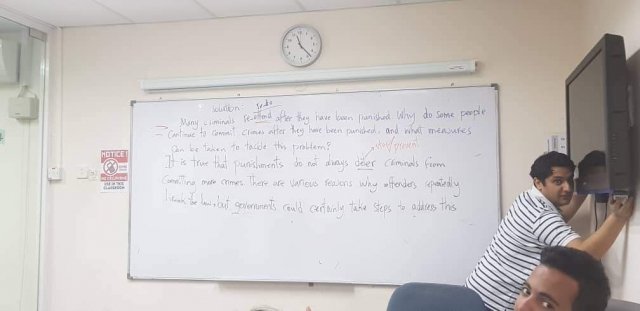 solution
Many criminals re-offend after they have been punished why do some people
Continue to commit crimes after they have been punished, and what measures
can be taken to tackle this problem?
It is true that punishments do not always deter criminals from
Committing more crimes. There are various reasons why offenders repeatedly
break the law, but governments could certainly take steps to address this
NOTICE
CLASSROOM